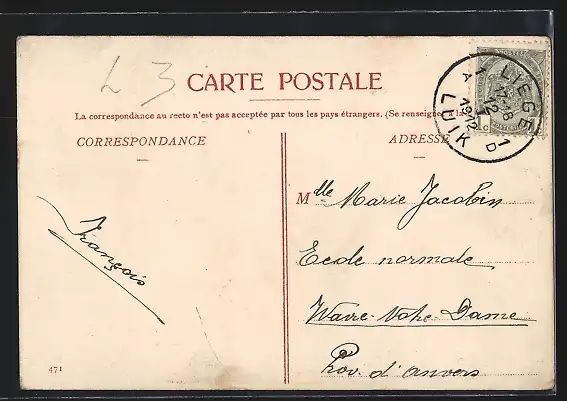 L 3
CARTE POSTALE
La correspondance au recto n'est pas acceptée par tous les pays étrangers. (Se renseigner à la
CORRESPONDANCE
ADRESSE
LIEGE 1
17-18
12
1912
LUIK 1
A D
Mlle Marie Jacobin
Ecole normale
Wavre-Notre-Dame
Prov. d'Anvers
François
471